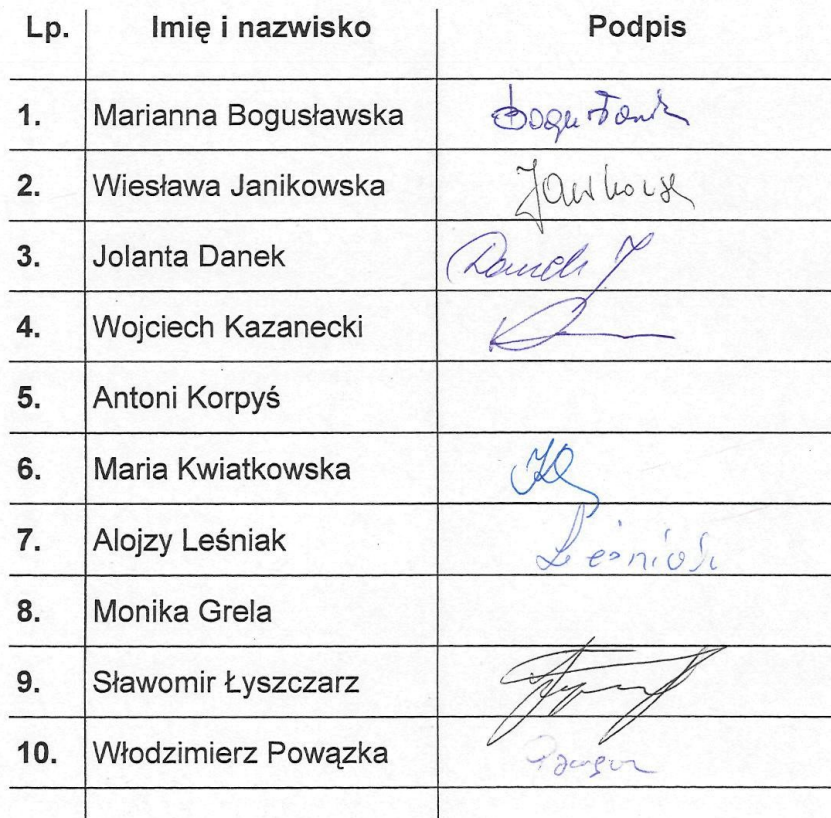 Lp. Imię i nazwisko Podpis
1. Marianna Bogusławska
2. Wiesława Janikowska
3. Jolanta Danek Danek J
4. Wojciech Kazanecki
5. Antoni Korpyś
6. Maria Kwiatkowska
7. Alojzy Leśniak Leśniak
8. Monika Grela
9. Sławomir Łyszczarz
10. Włodzimierz Powązka